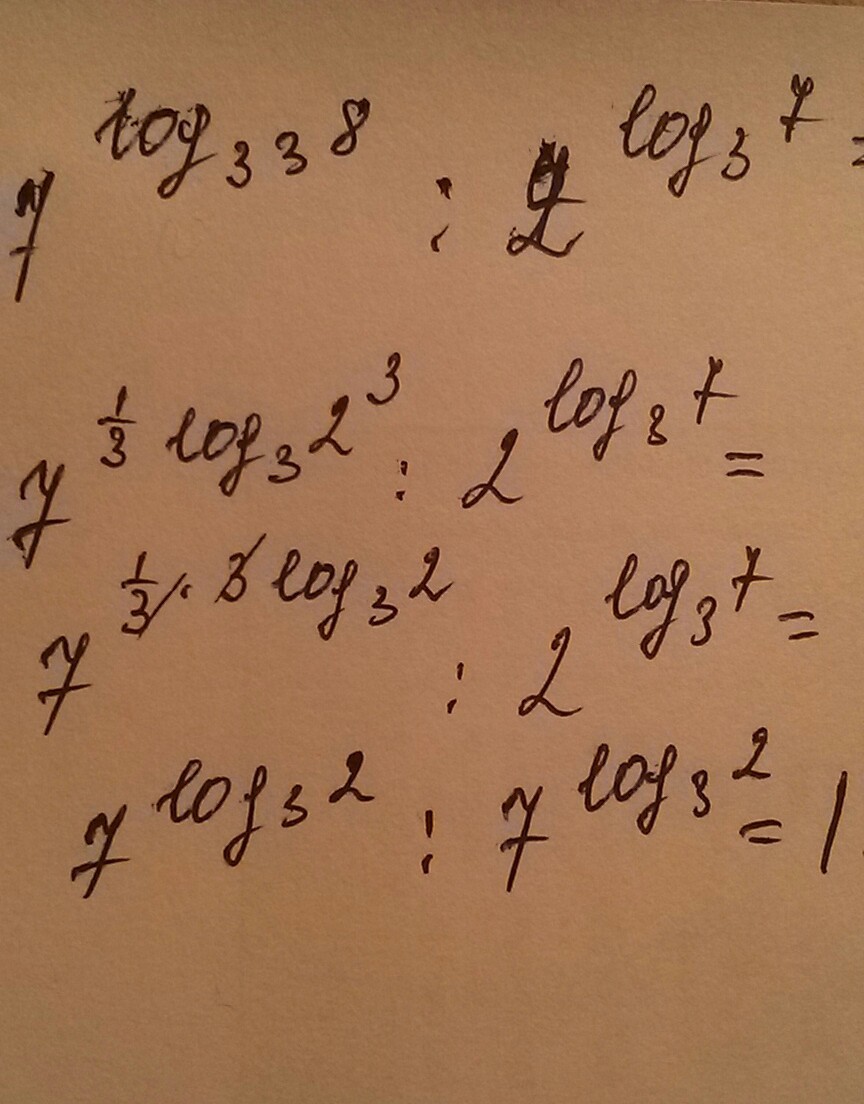 7^{log_{3^3} 8} : 2^{log_3 7} =
7^{\frac{1}{3} log_3 2^3} : 2^{log_3 7} =
7^{\frac{1}{3} · 3 log_3 2} : 2^{log_3 7} =
7^{log_3 2} : 7^{log_3 2} = 1.